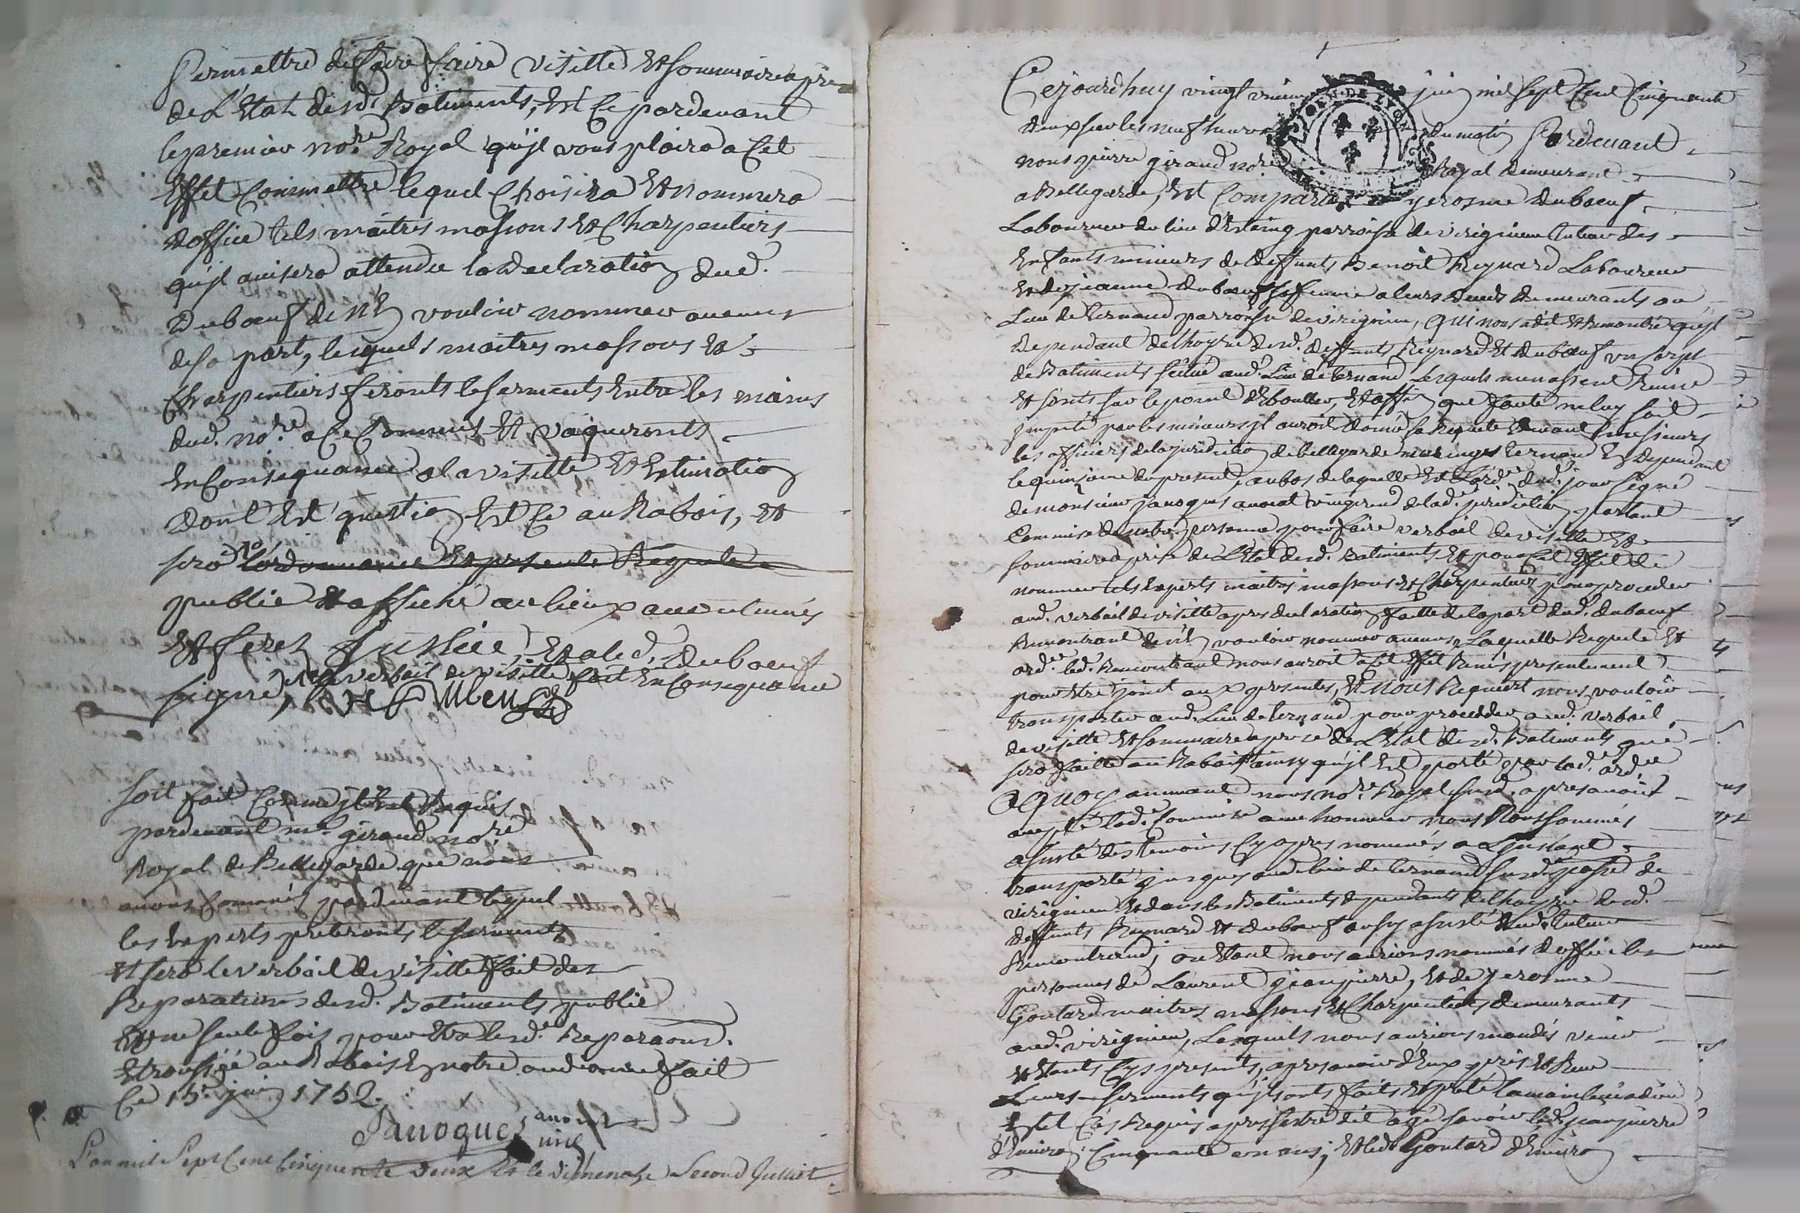 Permettre de faire faire visitte Et sommaire apprise
de L'Etat desd. Batiments, Et Ce pardevant
le premier no.re Royal qu'jl vous plaira a Cet
Effet Commettre lequel Choisira Et nommera
doffice tels maitres massons Et Charpentiers
qu'jl avisera attendu la declaration dud.
Duboeuf de n'En vouloir nommer aucuns
de sa part, lesquels maitres massons Et
Charpentiers feronts le serments Entre les mains
dud. no.re a Ce Commis Et vaqueronts
En Consequance a la visitte Et Estimation
dont Est question Et Ce au Rabais, Et
sera l'ordonnance Et presente Requete
publié Et affiché au lieux accoutumés
Et ferez Justice, Et a led. Duboeuf
signé, le verbail de visitte fait En Consequance
soit fait Comme jl Est Requis
pardevant m.e giraud no.re
Royal de Bellegarde que nous
avons Commis pardevant lequel
les Experts preteronts le serments
Et sera le verbail de visitte fait des
Reparations desd. Batiments publié
Et une seule fois pour Etre lesd. Reparaons.
Et au Rabais En notre audience fait
Ce 15.e juin 1752.
Janoque
L'an mil Sept Cent Cinquante deux Et le dimenche Second Juilliet
Cejourdhuy vingt juin mil sept Cent Cinquante
deux sur les neuf heures du matin Pardevant
nous pierre giraud no.re Royal demeurant
a Bellegarde, Est Comparu jerosme Duboeuf
Laboureur du lieu d' parroisse de virignieu tuteur des
Enfants mineurs de deffunts Benoit Reynard Laboureur
Et de jeanne Duboeuf sa femme a leurs deceds demeurants au
Lieu de Ternand parroisse de virignieu, qui nous a dit Et Remontré qu'jl
dependant de l'hoyrie desd. deffunts Reynard Et duboeuf un corps
de Batiments scitué aud. Lieu de Ternand Lesquels menassent Ruine
Et sonts sur le point d'Ebouller Et affin que faute ne luy soit
jmputé par les mineurs jl auroit donné sa Requete devant messieurs
les officiers de la juridiction de Bellegarde Ternand En dependant
le quinzieme du present, au bas de laquelle Est L'ord.e dud. jour signé
de monsieur janoque avocat vingerend de lad. juridiction portant
Commise de notre personne pour faire verbail de visitte Et
sommaire aprise de L'Etat desd. Batiments Et pour Cet Effet de
nommer tels Experts maitres massons Et Charpentiers pour proceder
aud. verbail de visitte apres declaration faitte de la part dud. duboeuf
Remontrant de n'En vouloir nommer aucuns, Laquelle Requete Et
ord.e led. Remontrant nous auroit a Cet Effet Remis presentement
pour Etre joint aux presentes, Et nous Requiert nous vouloir
transporter aud. Lieu de Ternand pour proceder aud. verbail
de visitte Et sommaire aprise de L'Etat desd. Batiments que
sera faitte au Rabais ainsy qu'jl Est porté par lad. ord.e
A quoy nous no.re Royal susd. apres avoir
accepté lad. Commise avec honneur nous nous sommes
assisté des temoins Cy apres nommés a L'jnstant
transporté jusques aud. lieu de Ternand susd. parr.e de
virignieu Et dans les Batiments dependants de l'hoyrie desd.
deffunts Reynard Et duboeuf aussy assisté dud. tuteur
Remontrand, ou Etant nous avions nommés d'office les
personnes de Laurent jeanpierre, Et de jerosme
Goutard maitres massons Et Charpentiers demeurants
aud. virignieu, Lesquels nous avrions mandés venir
Et Etants Cy presents, apres avoir d'Eux pris Et Receu
Leurs serments qu'jls onts faits Et preté la main levée a dieu
Et Ces Requis apres s'etre dit agé savoir led. jeanpierre
d'Environ Cinquante ans, Et led. Goutard d'Environ